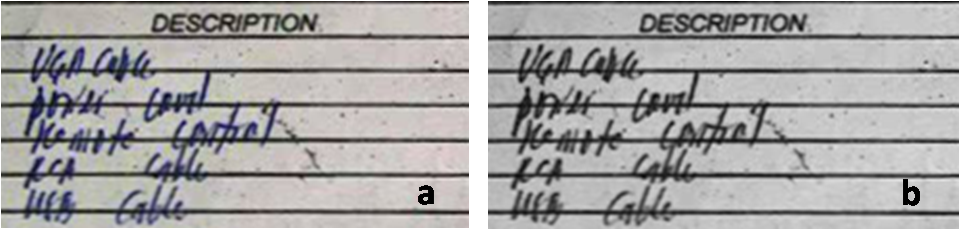 DESCRIPTION
VGA Cable
Remote Control
RCA Cable
USB Cable
a
DESCRIPTION
VGA Cable
Remote Control
RCA Cable
USB Cable
b